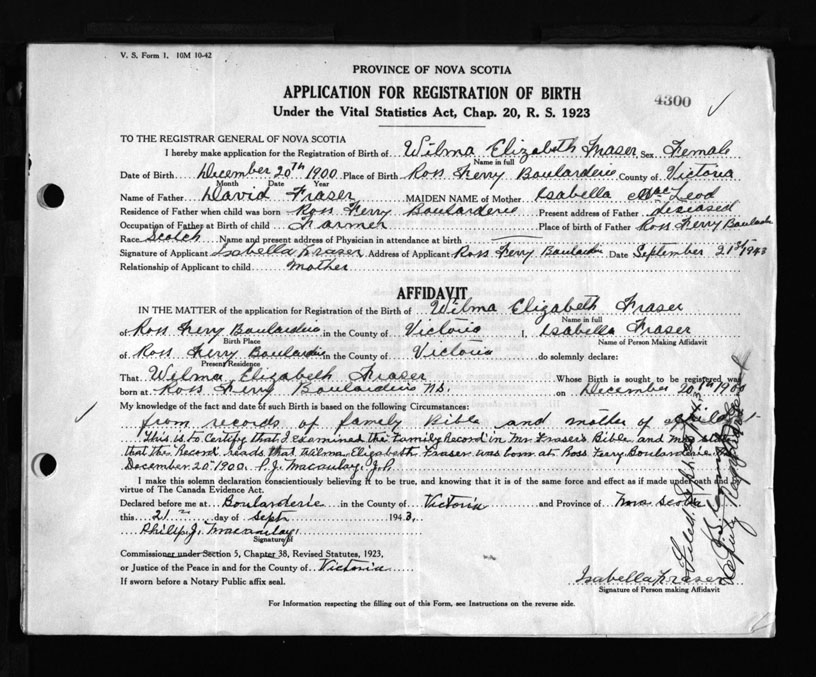 V. S. Form 1. 10M 10-42
PROVINCE OF NOVA SCOTIA
APPLICATION FOR REGISTRATION OF BIRTH
4300
Under the Vital Statistics Act, Chap. 20, R. S. 1923
TO THE REGISTRAR GENERAL OF NOVA SCOTIA
I hereby make application for the Registration of Birth of Wilma Elizabeth Fraser Sex Female
Name in full
Date of Birth December 20th 1900 Place of Birth Ross Ferry Boularderie County of Victoria
Month Date Year
Name of Father David Fraser MAIDEN NAME of Mother Isabella MacLeod
Residence of Father when child was born Ross Ferry Boularderie Present address of Father deseased
Occupation of Father at Birth of child Farmer Place of birth of Father Ross Ferry Boularderie
Race Scotch Name and present address of Physician in attendance at birth
Signature of Applicant Isabella Fraser Address of Applicant Ross Ferry Boularderie Date September 21st 1943
Relationship of Applicant to child mother
AFFIDAVIT
IN THE MATTER of the application for Registration of the Birth of Wilma Elizabeth Fraser
Name in full
of Ross Ferry Boularderie in the County of Victoria I, Isabella Fraser
Birth Place Name of Person Making Affidavit
of Ross Ferry Boularderie in the County of Victoria do solemnly declare:
Present Residence
That Wilma Elizabeth Fraser Whose Birth is sought to be registered was
born at Ross Ferry Boularderie N.S. on December 20th 1900
My knowledge of the fact and date of such Birth is based on the following Circumstances:
from records of family Bible and mother of child
This is to Certify that I examined the Family Record in Mrs Fraser's Bible and
that the Record reads that Wilma Elizabeth Fraser was born at Ross Ferry Boularderie
December 20th 1900. P. J. Macaulay, J.P.
I make this solemn declaration conscientiously believing it to be true, and knowing that it is of the same force and effect as if made under oath and by
virtue of The Canada Evidence Act.
Declared before me at Boularderie in the County of Victoria and Province of Nova Scotia
this 21st day of Sept 1943.
Philip J. Macaulay
Signature of
Commissioner under Section 5, Chapter 38, Revised Statutes, 1923,
or Justice of the Peace in and for the County of Victoria
If sworn before a Notary Public affix seal.
Isabella Fraser
Signature of Person making Affidavit
For Information respecting the filling out of this Form, see Instructions on the reverse side.
Filed Sept
Deputy Registrar General